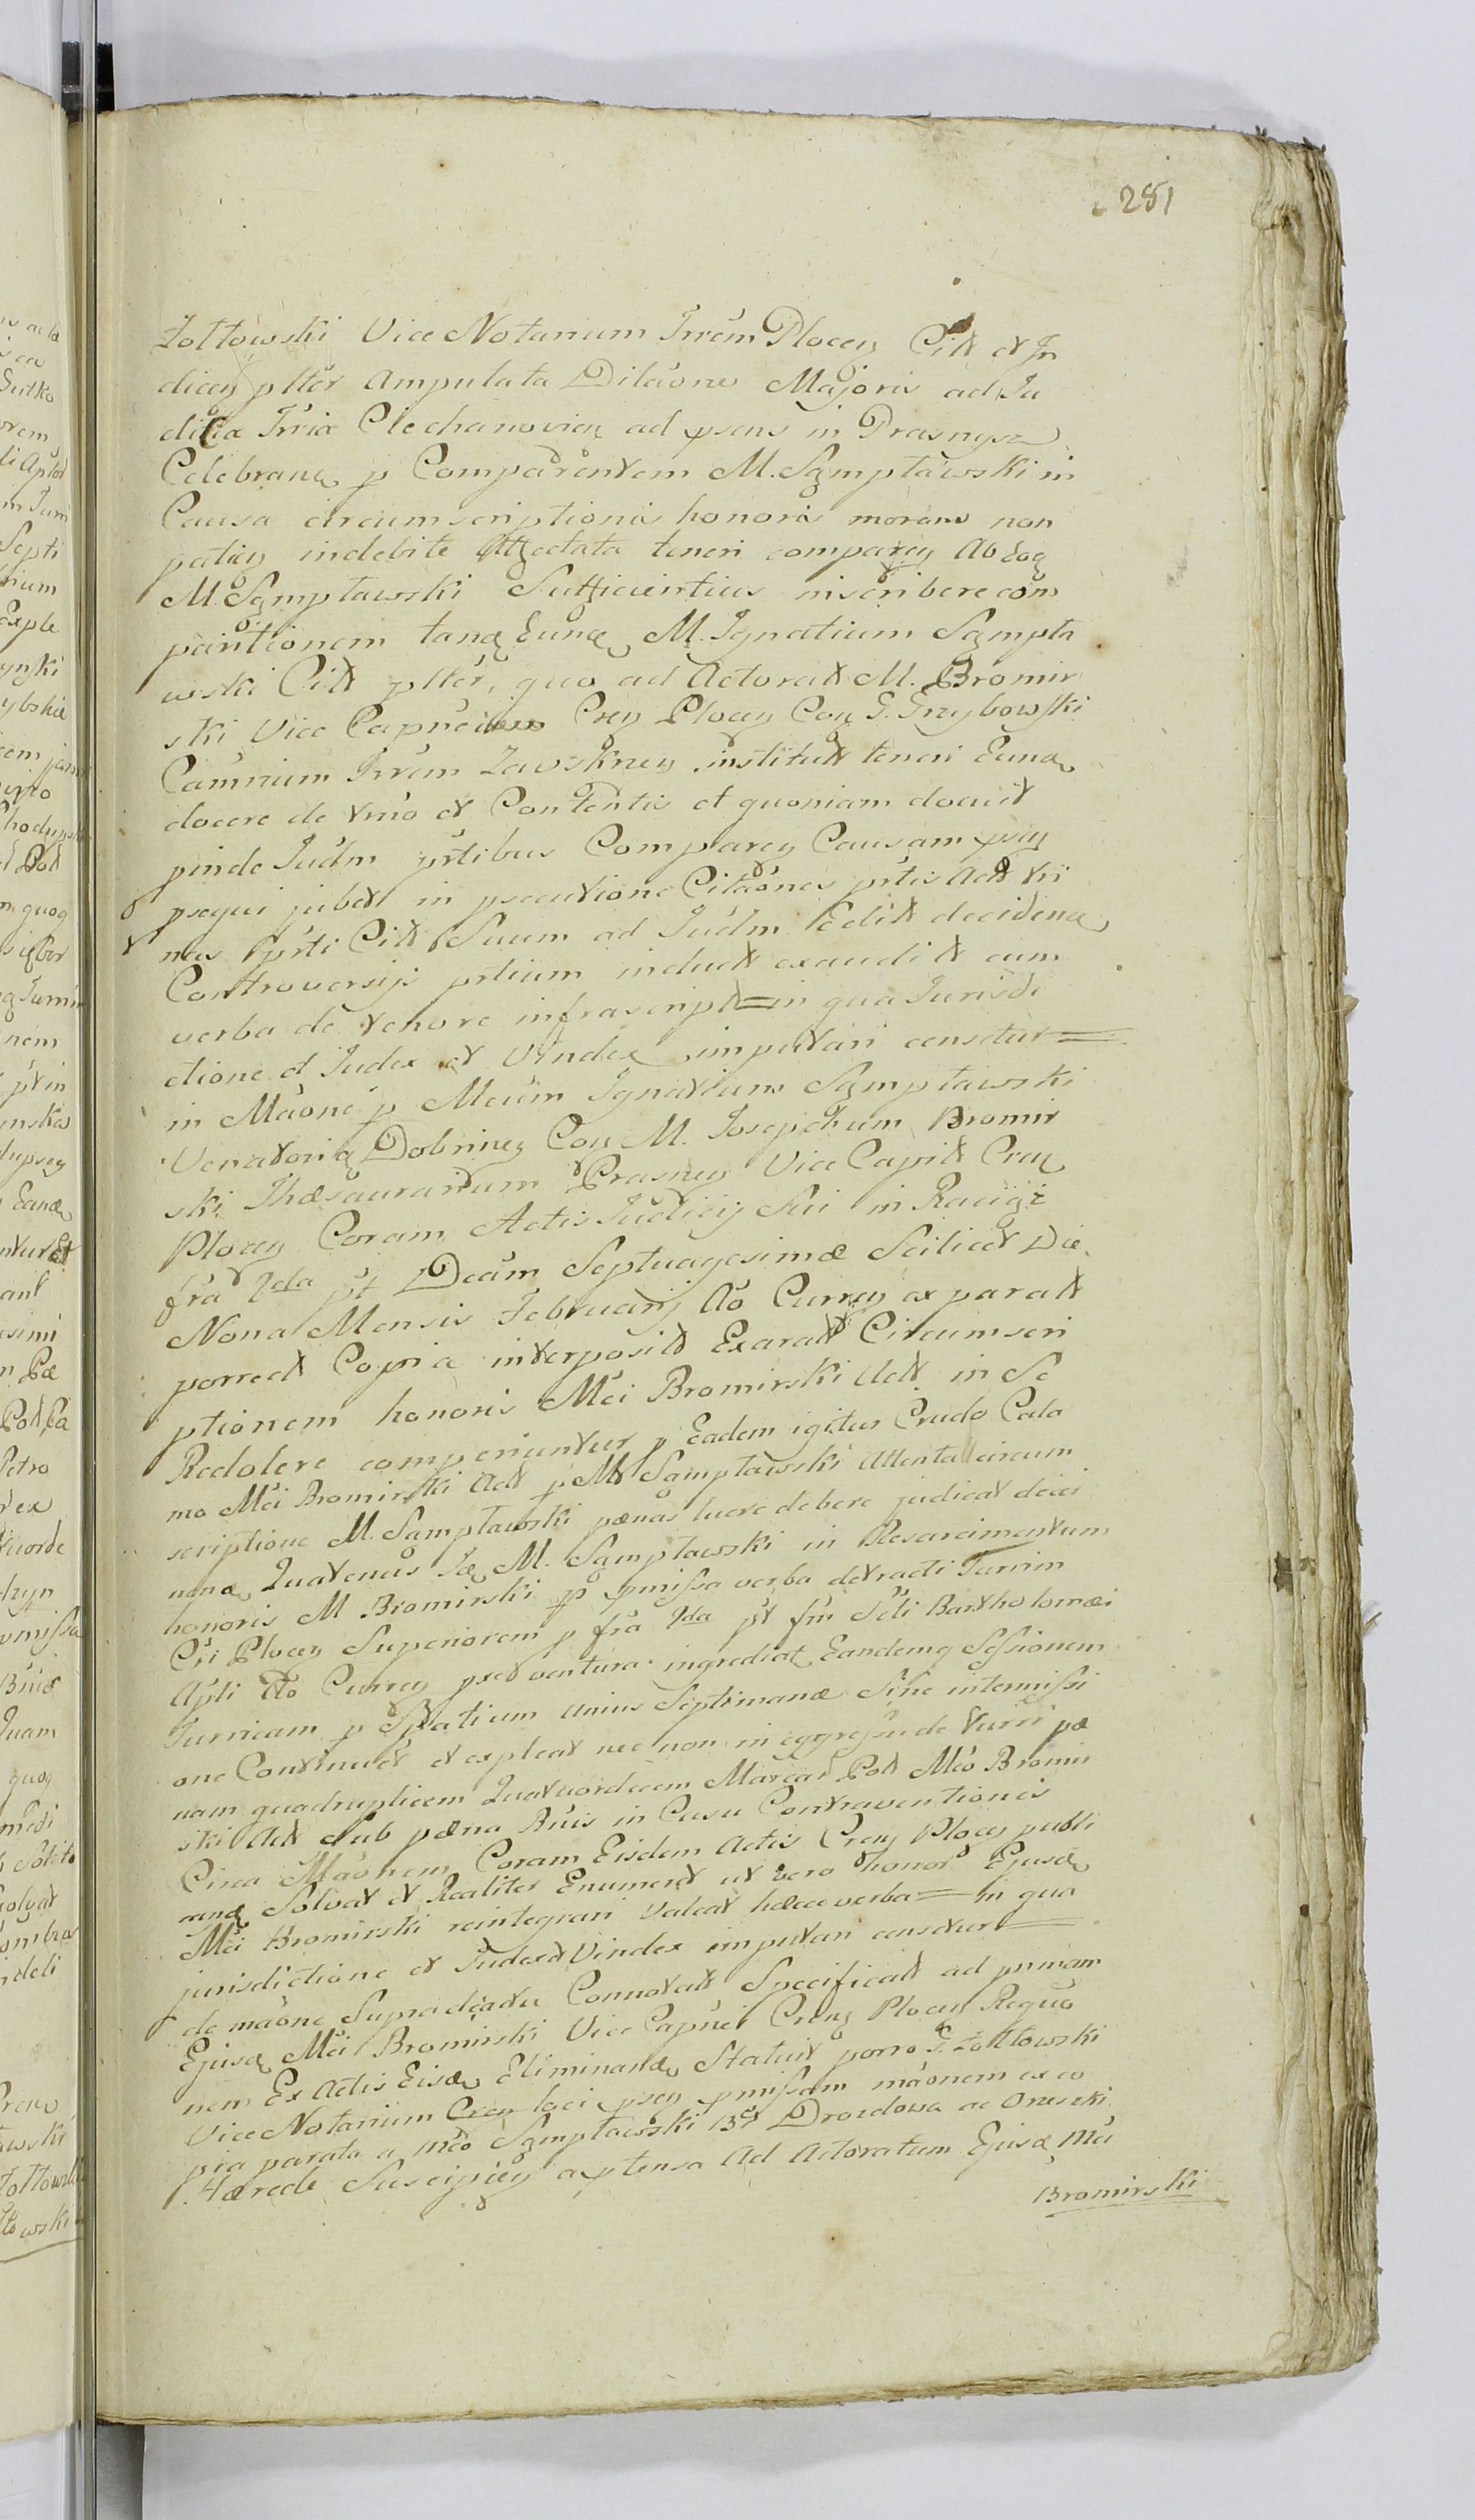 281
Zołtowski Vice Notarium Trrẽm Plocen Citt et In
dicen plter Ampulata Dilaone Majoris ad Iu
dicia Trria Ciechanovien ad psens in Prasnysz
Celebrana p Comparentem M. Sampławski in
Causa circumscriptionis honoris moram non
patien indebite Affectata teneri comparen Ab Eoq
M. Sampławski Sufficientius inscribere com
paritionem tanq Eunq M. Ignatium Sampła
wski Citt plter, quo ad Actorat M. Bromir
ski Vice Capnei Cren Plocen Con G. Grzybowski
Camrium Trrẽm Zawskren institut teneri Eunq
docere de trno et Contentis et quoniam docuit
pinde Iudm prtibus Comparen Causam psen
psequi jubet in psecutione Citaones prtis Act tri
nas prti Citt Suum ad Iudm Edit decidena
Controversijs prtium induct exaudit cum
verba de tenore infrascript = in qua Iurisdi
ctione et Iudex et Vindex imputari censetur =
in Maone p Meum Ignatium Sampławski
Venatoria Dobrinen Con M. Iosephum Bromir
ski Thæsaurarium Prasnen Vice Capit Cren
Plocen Coram Actis Iudicij Sui in Raciąż
fra 2da pt Dcam Septuagesimæ Scilicet Die
Nona Mensis Februarij Ao Curren ex parat
porrect Copia interposit Exarat Circumscri
ptionem honoris Mci Bromirski Act in Se
Redolere comperiuntur p Eadem igitur Crudo Cala
mo Mci Bromirski Act p M Sampławski Attenta circum
scriptione M. Sampławski pænas luere debere judicat decer
nena Quatenus Iæ M. Sampławski in Resarcimentum
honoris M Bromirski p pmissa verba detracti Turrim
Cri Plocen Superiorem p fra 2da pt fm Sti Bartholomæi
Apli Ao Curren pxe ventura ingrediat Eandemq Sessionem
Turricam p Spatium unius Septimanæ Sine intermissi
one Continuet et expleat nec non in eggressu de Turri pæ
nam quadruplicem Quatuordecem Marcar Pol Mco Bromir
ski Act Sub pæna Buis in Casu Contraventionis
Circa Maonem Coram Eisdem Actis Cren Plocen publi
cana Solvat et Realiter Enumeret ut vero honor Ejusd
Mci Bromirski reintegrari Valeat hæcce verba = in qua
jurisdictione et Iudex et Vindex imputari censetur =
de maone Supradicatu Connotat Specificat ad primam
Ejusd Mci Bromirski Vice Capnei Cren Plocen Requo
nem Ex Actis Eisd Eliminand Statuit porro G. Zołtowski
Vice Notarium Cren loci psen pmissam maonem ex co
pia parata a Mco Sampławski Bt Drozdowa ac Oneski
Hærede Suscipien aptensa Ad Actoratum Ejusd Mci
Bromirski